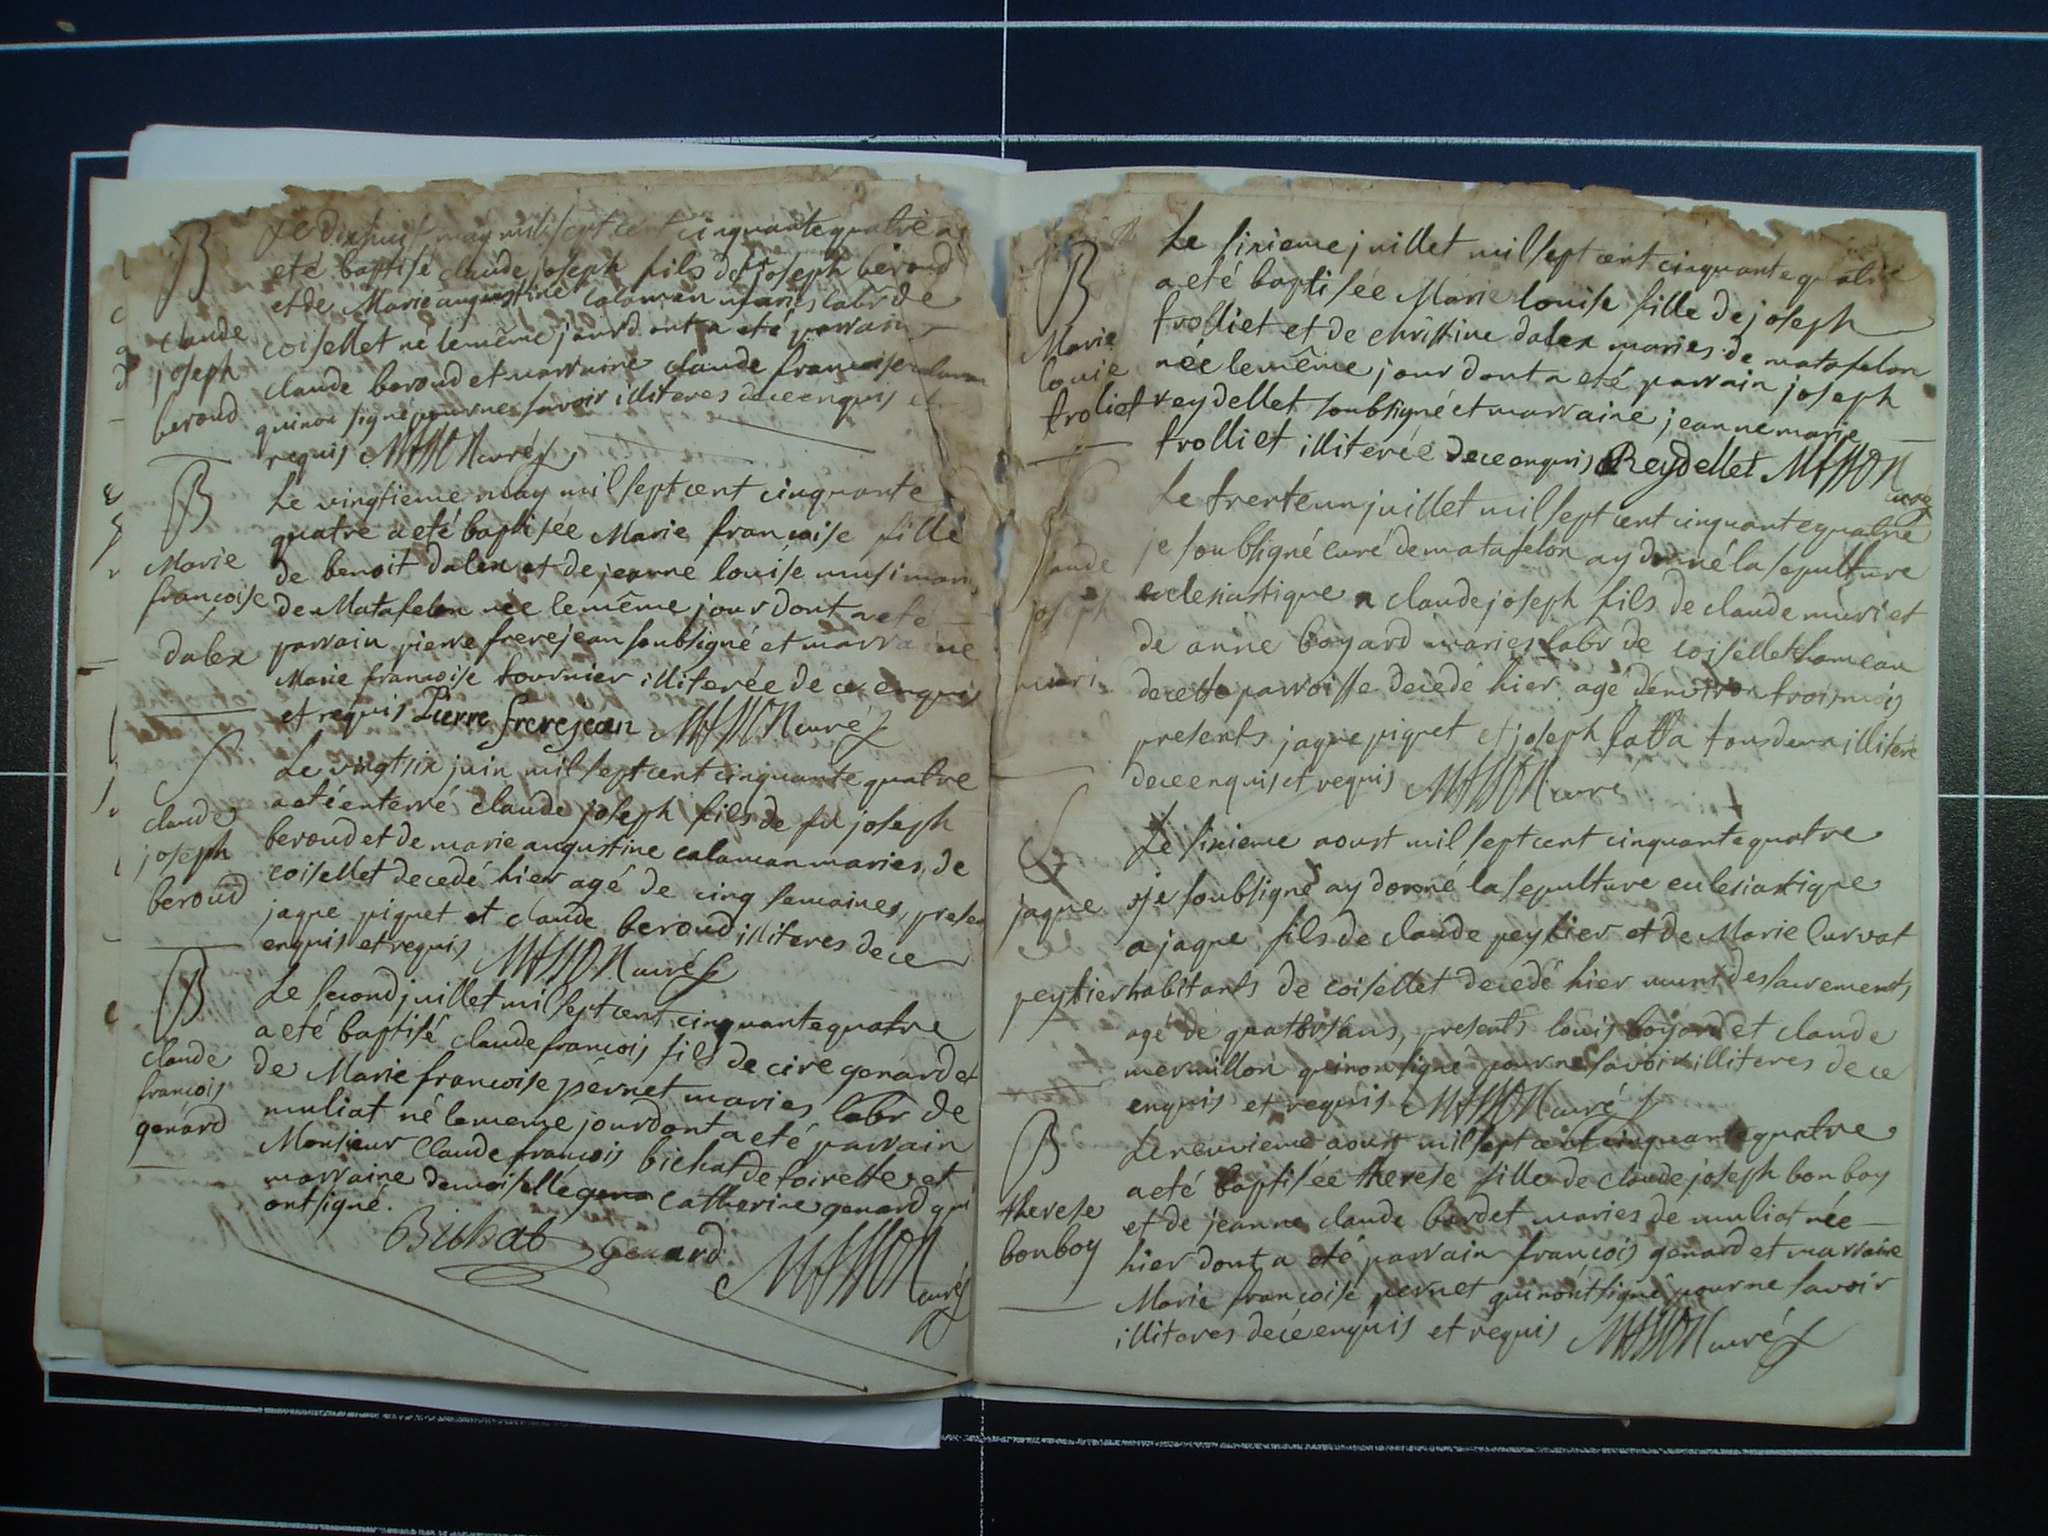 B
claude
joseph
beroud
Le dixhuit may mil sept cent cinquante quatre a
eté baptisé claude joseph fils de joseph beroud
et de Marie augustine calaman maries labr de
coisellet né le même jour dont a eté parrain
claude beroud et marraine claude francoise
qui non signé pour ne savoir illiteres de ce enquis et
requis MASSON curé
B
Marie
françoise
dalex
Le vingtieme may mil sept cent cinquante
quatre a eté baptisée Marie francoise fille
de benoit dalex et de jeanne louise musi maries
de Matafelon née le même jour dont a eté
parrain pierre frerejean soubsigné et marraine
Marie francoise tournier illiterée de ce enquis
et requis Pierre frerejean MASSON curé
S
claude
joseph
beroud
Le vingt six juin mil sept cent cinquante quatre
a eté enterré claude joseph fils de fû joseph
beroud et de marie augustine calaman maries, de
coisellet decedé hier agé de cinq semaines, presen
jaque piquet et claude beroud illiteres de ce
enquis et requis MASSON curé
B
claude
francois
genard
Le second juillet mil sept cent cinquante quatre
a eté baptisé claude francois fils de cire genard et
de Marie francoise pernet maries labr de
muliat né le meme jour dont a eté parrain
Monsieur Claude francois bichat de toirette et
marraine demoiselle gena catherine genard qui
ont signé.
Bichat Genard MASSON
curé
B
Marie
louise
troliet
Le sixieme juillet mil sept cent cinquante quatre
a eté baptisée Marie louise fille de joseph
trolliet et de christine dalex maries de matafelon
née le même jour dont a eté parrain joseph
reydellet soubsigné et marraine jeanne marie
trolliet illiterée de ce enquis Reydellet MASSON
curé
S
claude
joseph
muri
Le trente un juillet mil sept cent cinquante quatre
je soubsigné curé de matafelon ay donné la sepulture
eclesiastique a claude joseph fils de claude muri et
de anne boyard maries labr de coisellet hameau
de cette parroisse decedé hier agé denviron trois mois
presents jaque piquet et joseph tous deux illiteré
de ce enquis et requis MASSON curé
S
jaque
peytier
Le sixieme aoust mil sept cent cinquante quatre
je soubsigné ay donné la sepulture eclesiastique
a jaque fils de claude peytier et de Marie curvat
habitants de coisellet decedé hier muni des sacrements
agé de quatorse ans, presents louis boyard et claude
mermillon qui non signé pour ne savoir illiteres de ce
enquis et requis MASSON curé
B
therese
bonboy
Le neuvieme aoust mil sept cent cinquante quatre
a eté baptisée therese fille de claude joseph bonboy
et de jeanne claude bordet maries de muliat née
hier dont a eté parrain francois genard et marraine
Marie francoise pernet qui nont signé pour ne savoir
illiteres de ce enquis et requis MASSON curé